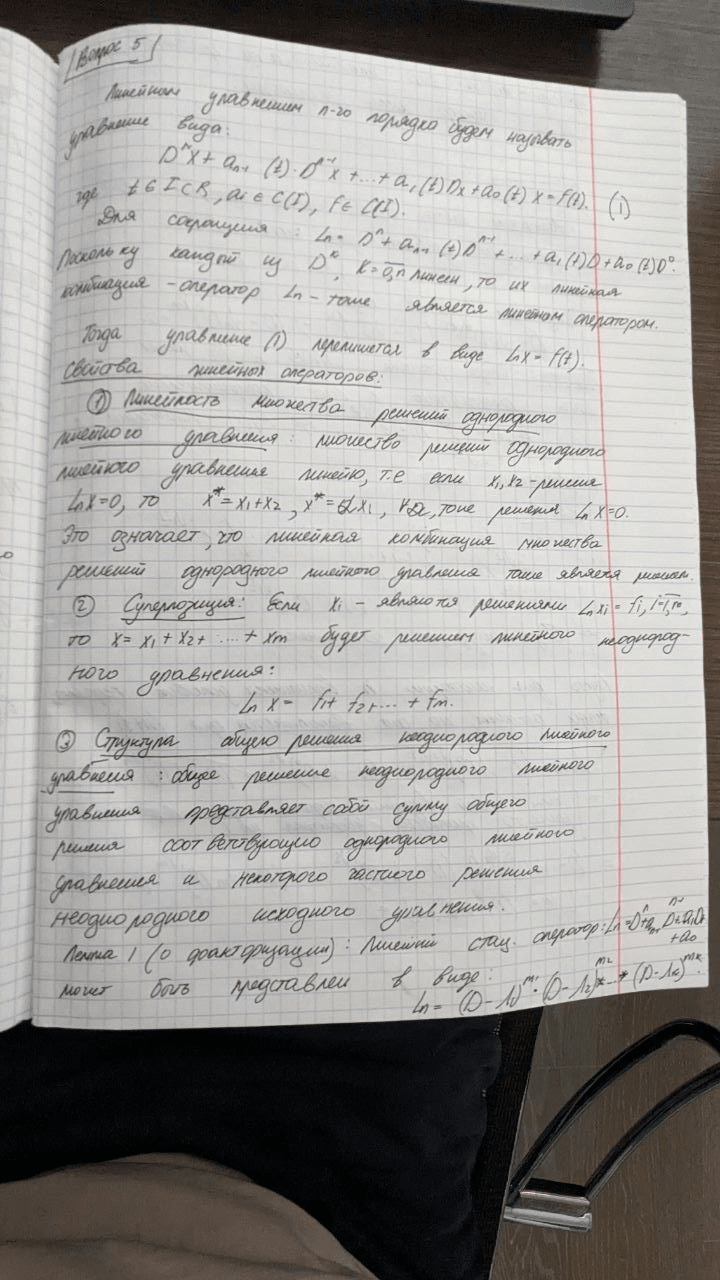 Вопрос 5
Линейным уравнением n-го порядка будем называть
уравнение вида:
Dⁿx + aₙ₋₁(t)·Dⁿ⁻¹x + ... + a₁(t)Dx + a₀(t)x = f(t). (1)
где t ∈ I ⊂ R, aᵢ ∈ C(I), f ∈ C(I).
Для сокращения: Lₙ = Dⁿ + aₙ₋₁(t)Dⁿ⁻¹ + ... + a₁(t)D + a₀(t)D⁰.
Поскольку каждый из Dᵏ, k = 0,n линеен, то их линейная
комбинация - оператор Lₙ - тоже является линейным оператором.
Тогда уравнение (1) перепишется в виде Lₙx = f(t).
Свойства линейных операторов:
① Линейность множества решений однородного
линейного уравнения: множество решений однородного
линейного уравнения линейно, т.е если x₁, x₂ - решения
Lₙx=0, то x* = x₁+x₂, x* = αx₁, ∀α, тоже решения Lₙx=0.
Это означает, что линейная комбинация множества
решений однородного линейного уравнения также является решением.
② Суперпозиция: Если xᵢ - являются решениями Lₙxᵢ = fᵢ, i=1,m,
то x = x₁ + x₂ + ... + xₘ будет решением линейного неоднород-
ного уравнения:
Lₙ x = f₁ + f₂ + ... + fₘ.
③ Структура общего решения неоднородного линейного
уравнения: общее решение неоднородного линейного
уравнения представляет собой сумму общего
решения соответствующего однородного линейного
уравнения и некоторого частного решения
неоднородного исходного уравнения.
Лемма 1 (о факторизации): Линейный стац. оператор: Lₙ = Dⁿ + aₙ₋₁Dⁿ⁻¹ + ... a₁D + a₀
может быть представлен в виде:
Lₙ = (D - λ₁)ᵐ¹ · (D - λ₂)ᵐ² * ... * (D - λₖ)ᵐᵏ.